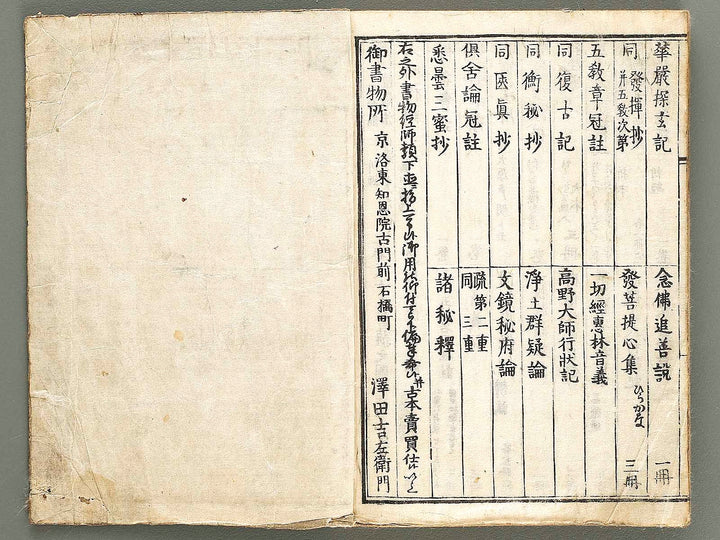 華嚴探玄記
念佛追善説 一冊
同 發揮抄 并五教次第
發菩提心集 ひらかな 三冊
五教章冠註
一切經惠林音義
同 復古記
高野大師行狀記
同 衡秘抄
淨土群疑論
同 匡眞抄
文鏡秘府論
倶舍論冠註
疏第二重
同 三重
悉曇三蜜抄
諸秘釋
右之外書物經師類下直
御用
古本賣買仕
御書物所 京洛東知恩院古門前石橋町 澤田吉左衛門